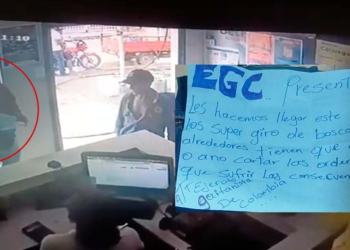 1:10
EGC.. Present
Les hacemos llegar este
los Super giro de bosco
alrededores tienen que
o ano cartar las orden
que sufrir las consecuen
Att Ejercito
gaitanista
De Colombia